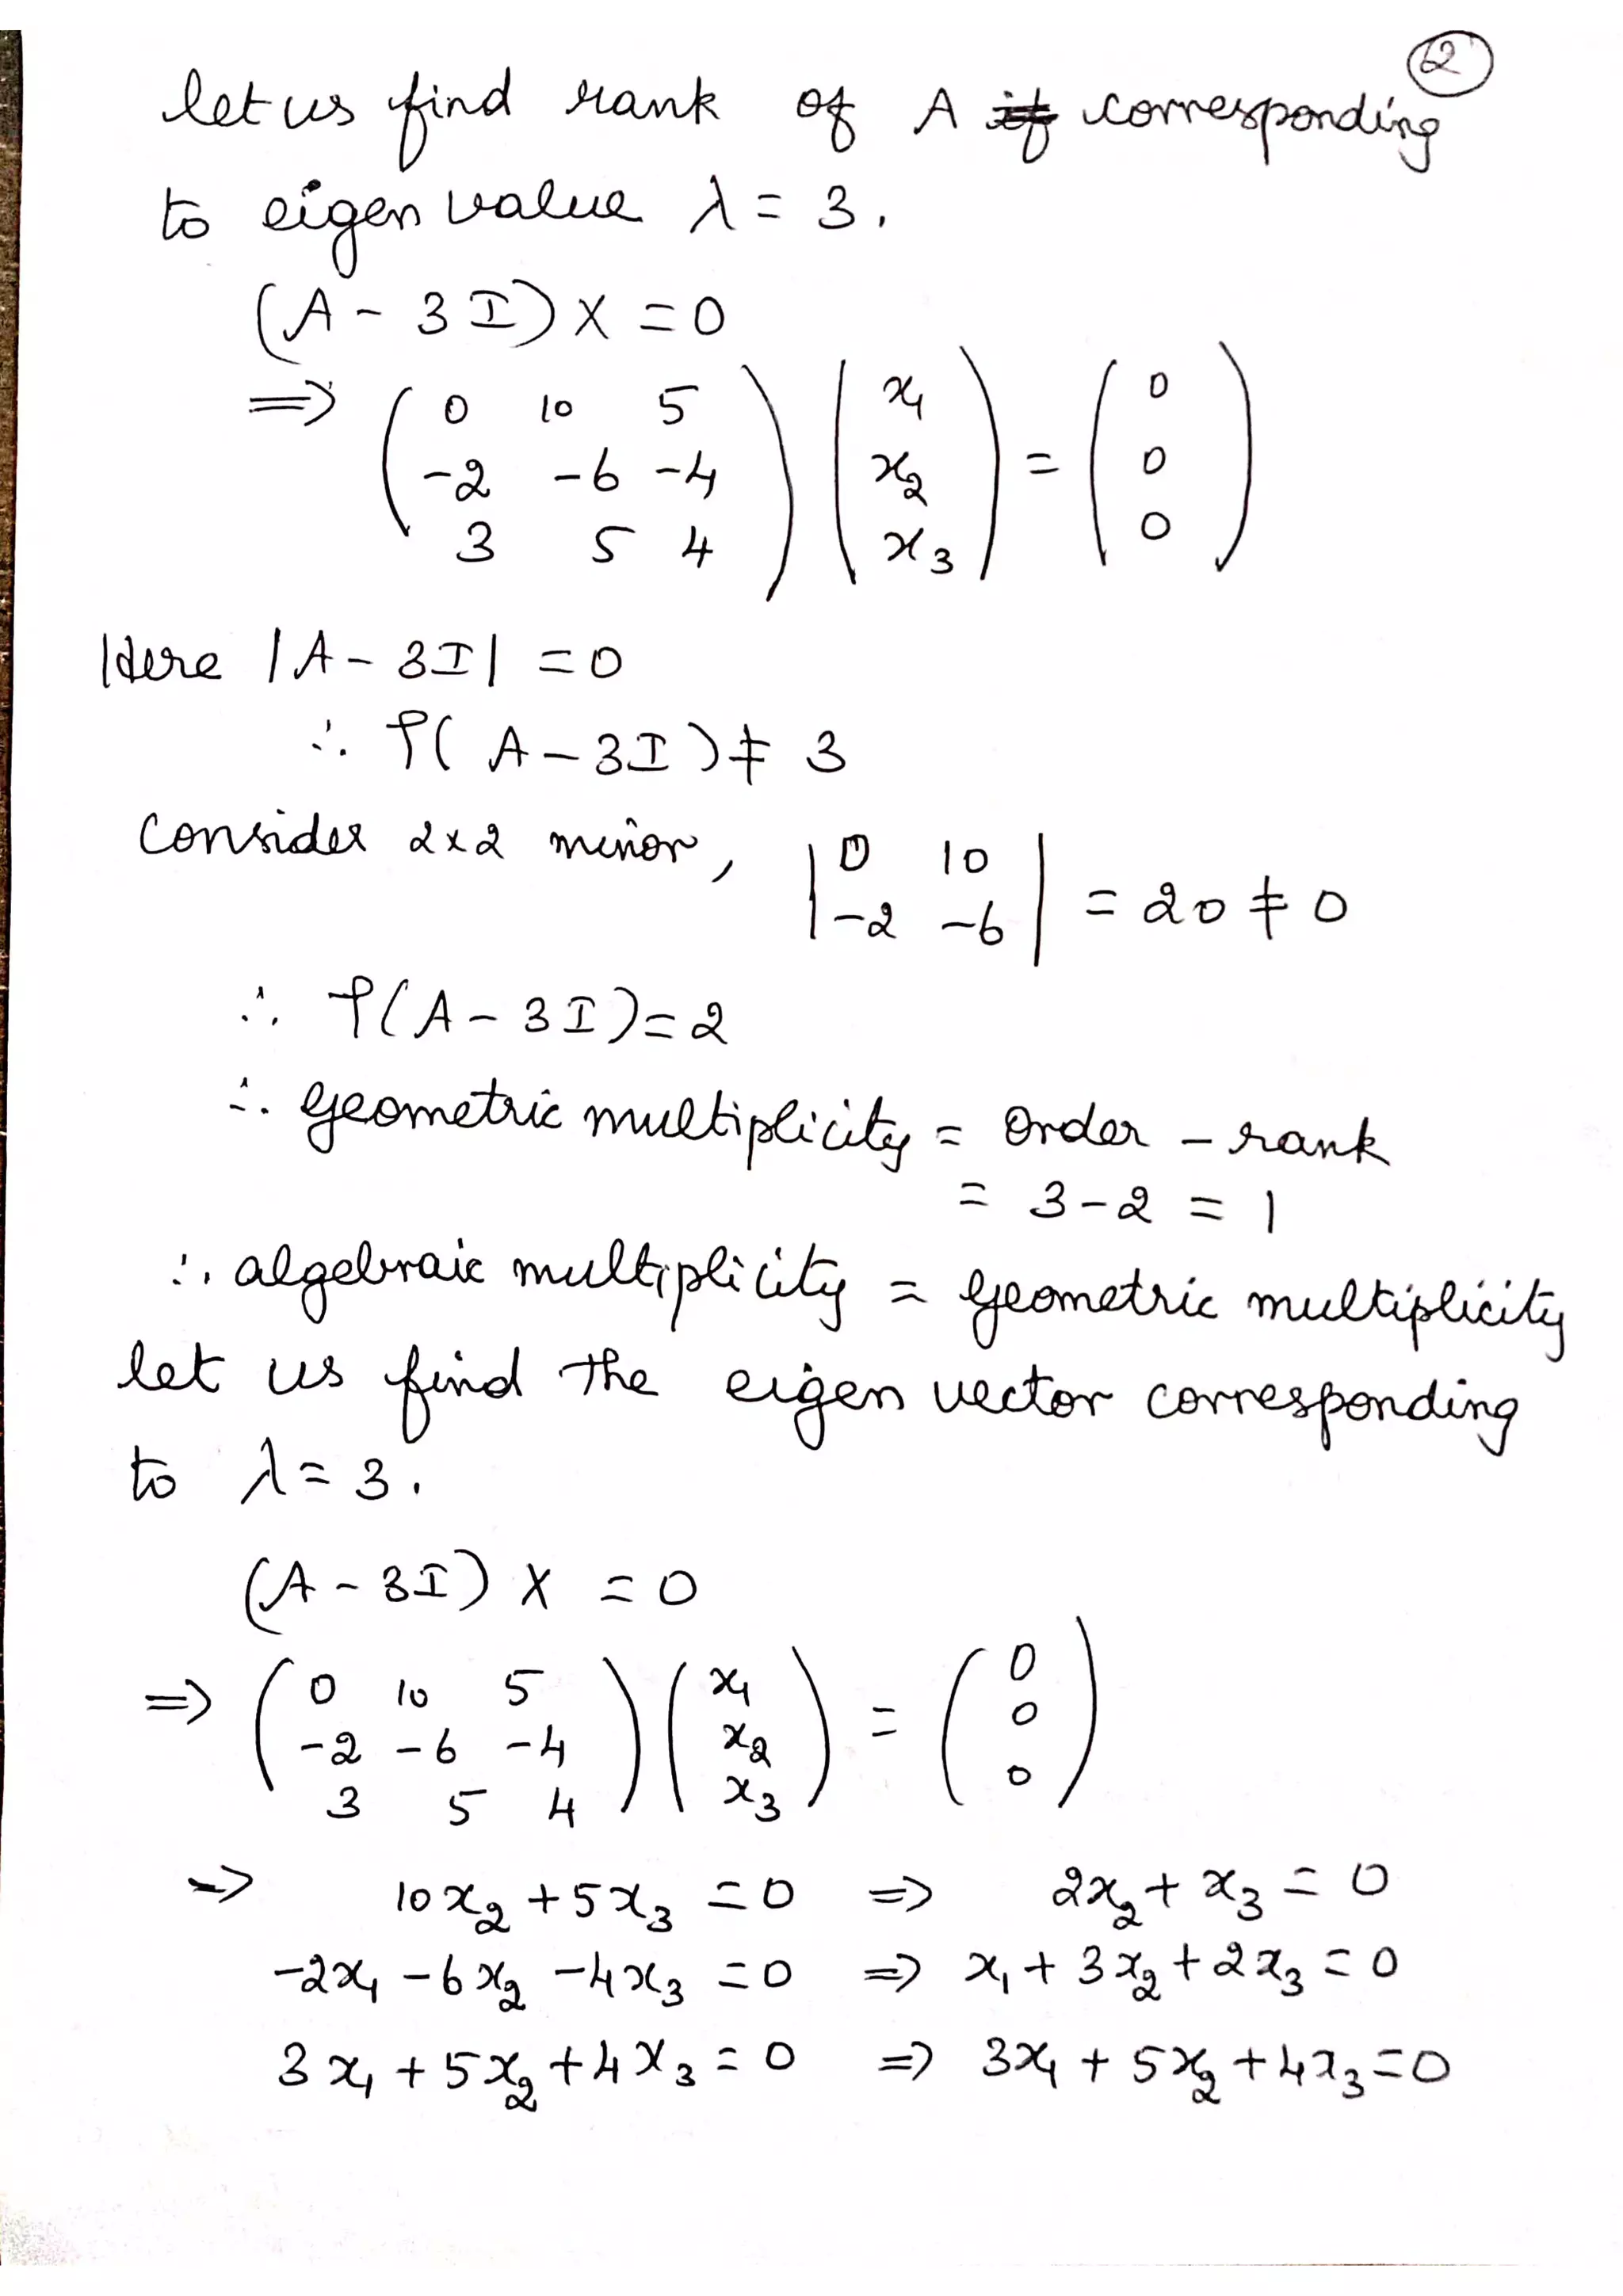 2
let us find rank of A if corresponding
to eigen value λ = 3.
(A - 3I) X = 0
⇒ ( 0 10 5 ) ( x₁ ) = ( 0 )
( -2 -6 -4 ) ( x₂ ) ( 0 )
( 3 5 4 ) ( x₃ ) ( 0 )
Here |A - 3I| = 0
∴ ρ( A - 3I ) ≠ 3
Consider 2×2 minor, | 0 10 |
| -2 -6 | = 20 ≠ 0
∴ ρ(A - 3I) = 2
∴ geometric multiplicity = order - rank
= 3 - 2 = 1
∴ algebraic multiplicity = geometric multiplicity
let us find the eigen vector corresponding
to λ = 3.
(A - 3I) X = 0
⇒ ( 0 10 5 ) ( x₁ ) = ( 0 )
( -2 -6 -4 ) ( x₂ ) ( 0 )
( 3 5 4 ) ( x₃ ) ( 0 )
⇒ 10x₂ + 5x₃ = 0 ⇒ 2x₂ + x₃ = 0
-2x₁ - 6x₂ - 4x₃ = 0 ⇒ x₁ + 3x₂ + 2x₃ = 0
3x₁ + 5x₂ + 4x₃ = 0 ⇒ 3x₁ + 5x₂ + 4x₃ = 0